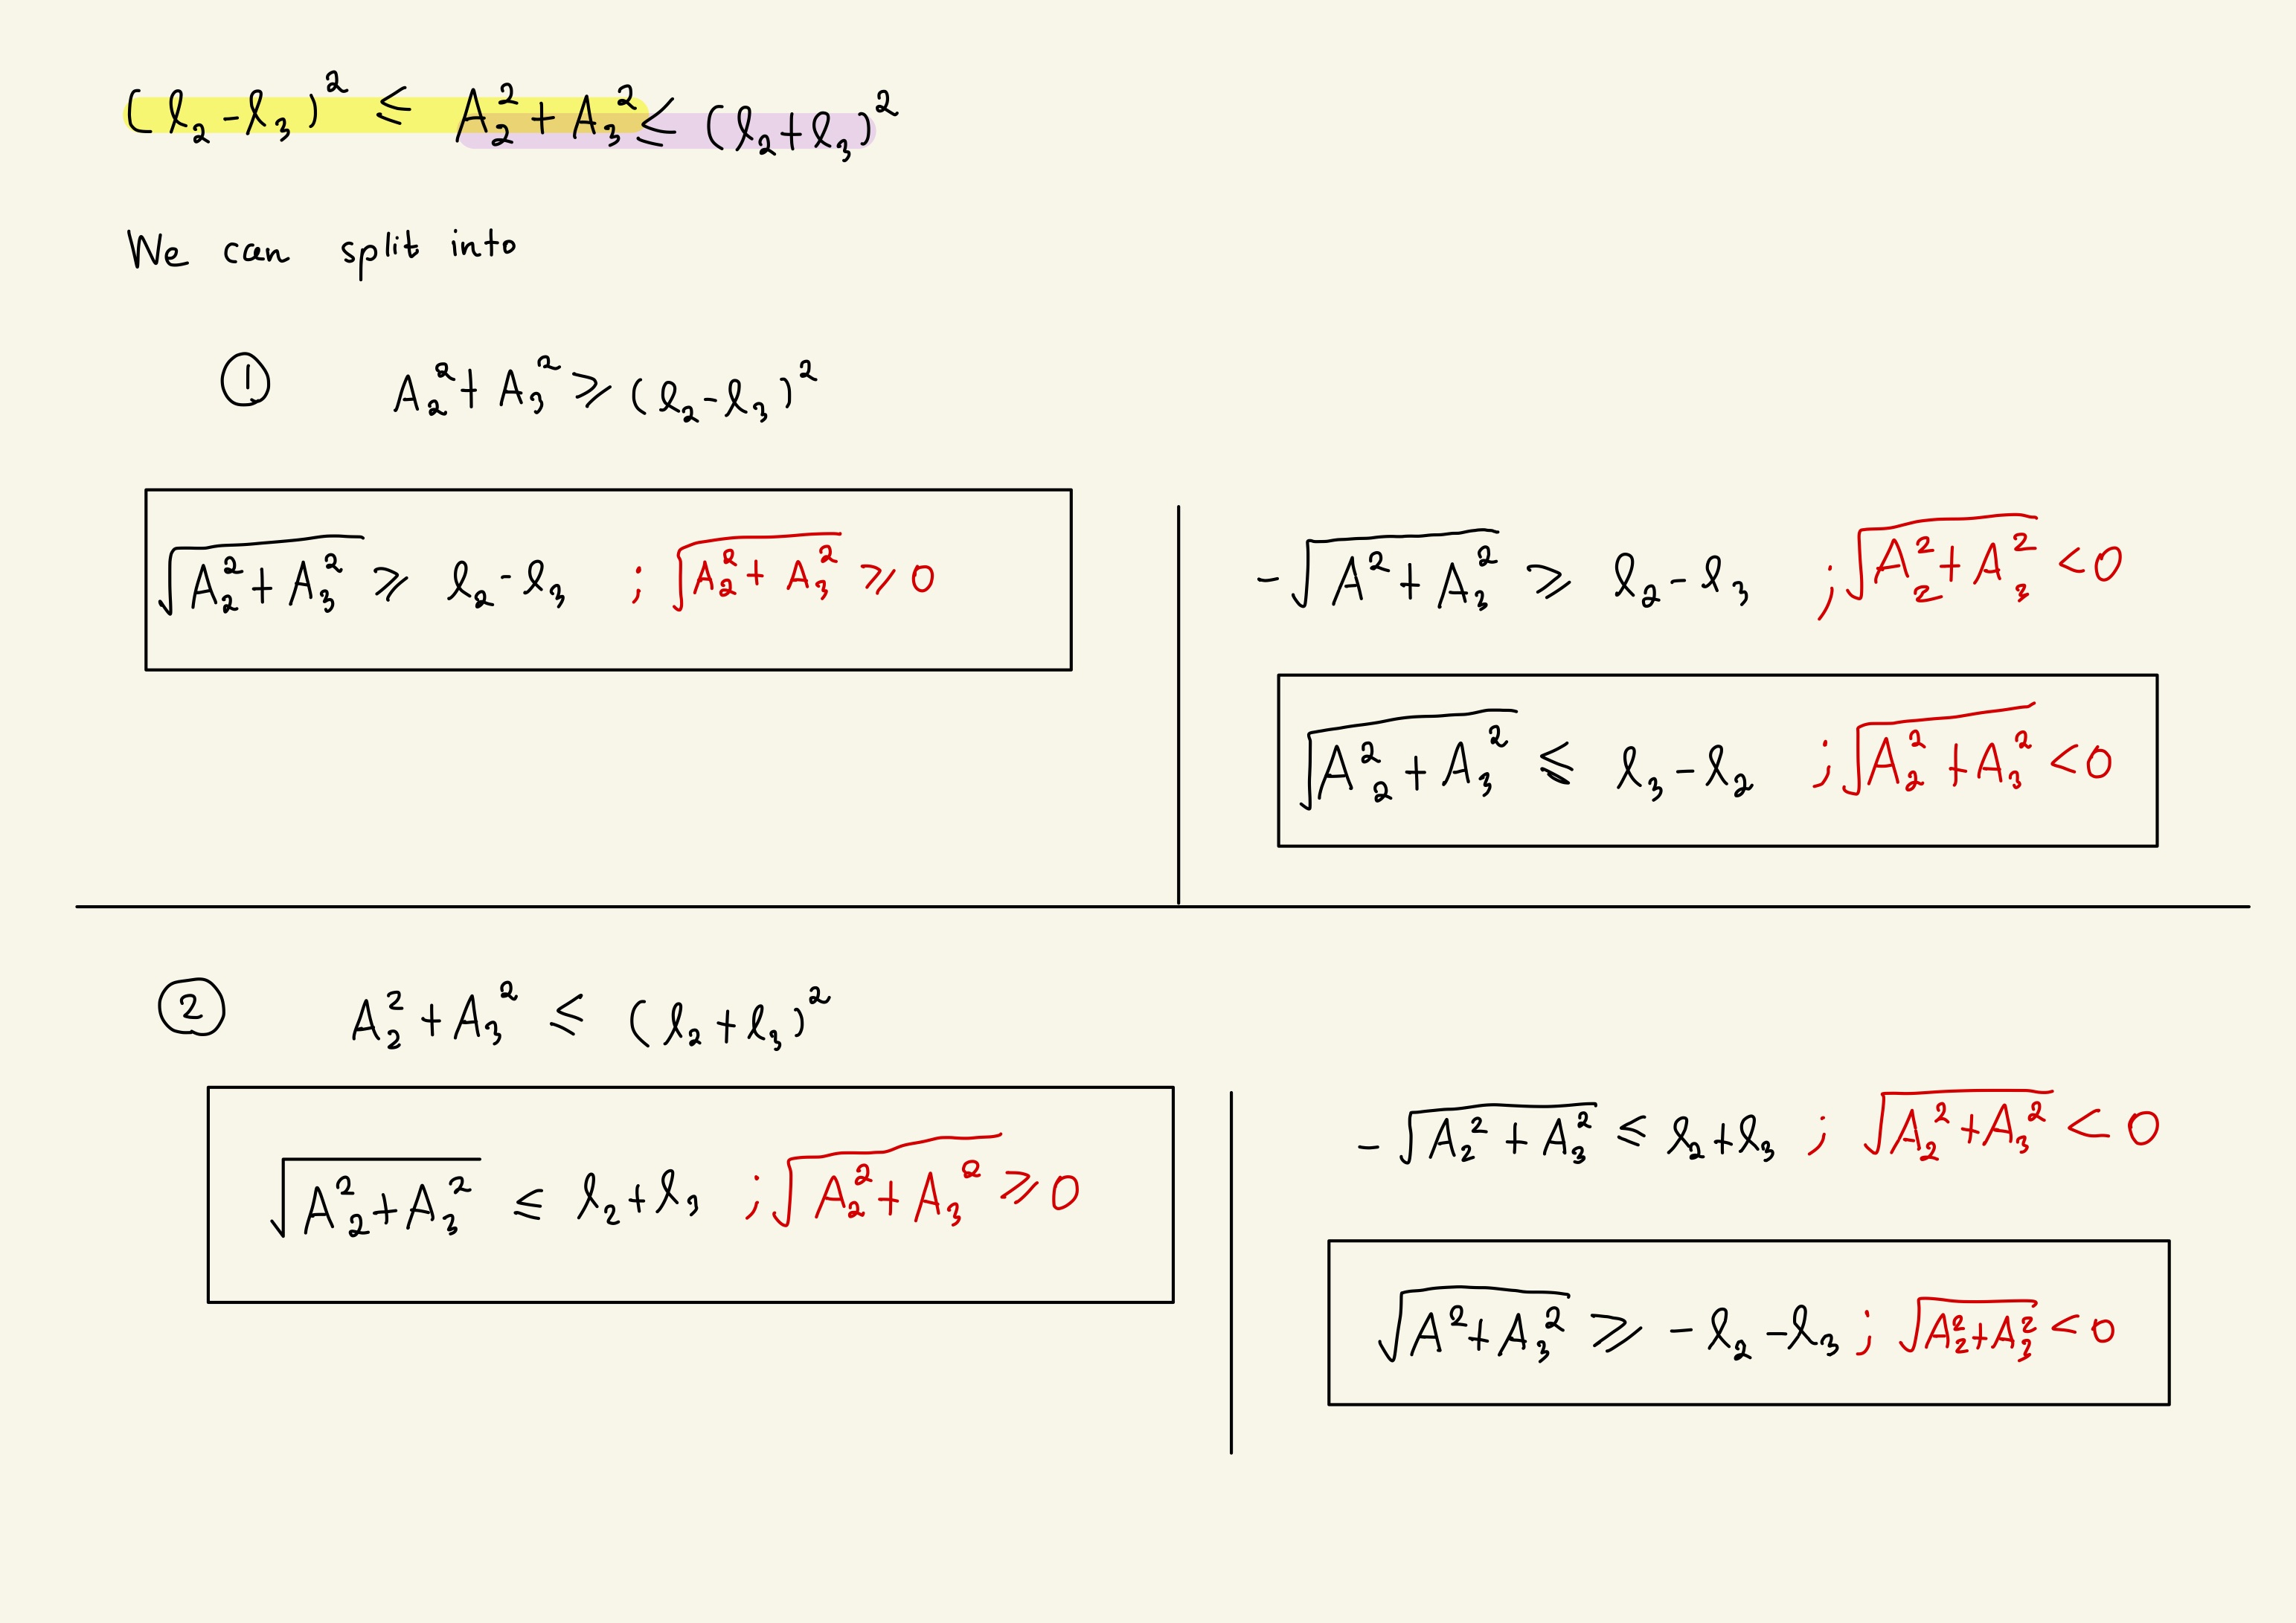 (l₂-l₃)² ≤ A₂² + A₃² ≤ (l₂+l₃)²
We can split into
① A₂² + A₃² ≥ (l₂-l₃)²
√(A₂² + A₃²) ≥ l₂-l₃ ; √(A₂² + A₃²) ≥ 0
-√(A² + A₃²) ≥ l₂-l₃ ; √(A₂² + A₃²) < 0
√(A₂² + A₃²) ≤ l₃-l₂ ; √(A₂² + A₃²) < 0
② A₂² + A₃² ≤ (l₂+l₃)²
√(A₂² + A₃²) ≤ l₂+l₃ ; √(A₂² + A₃²) ≥ 0
-√(A₂² + A₃²) ≤ l₂+l₃ ; √(A₂² + A₃²) < 0
√(A² + A₃²) ≥ -l₂-l₃ ; √(A₂² + A₃²) < 0